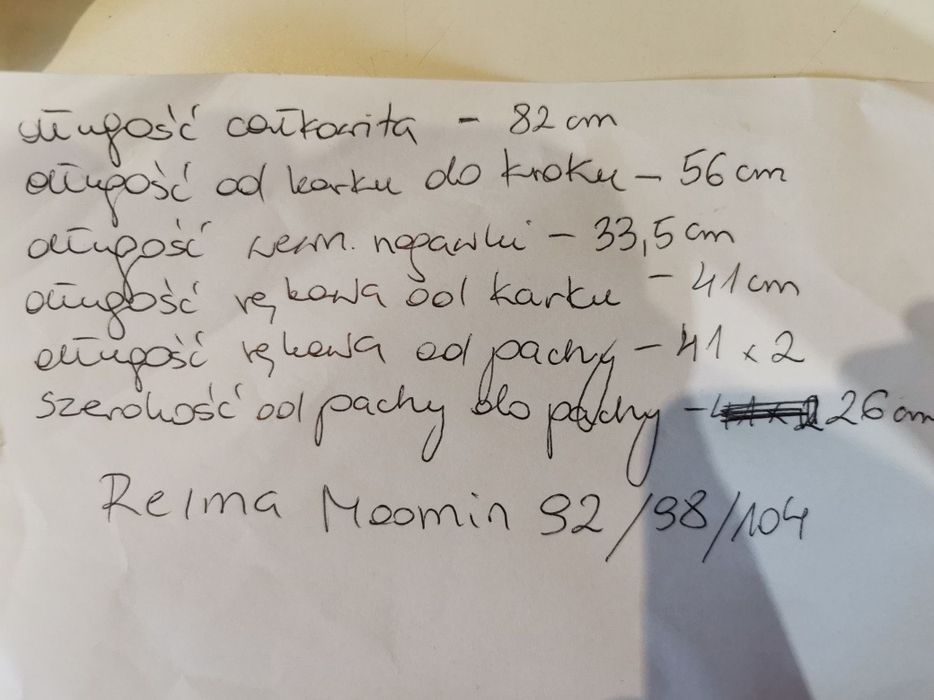 długość całkowita - 82 cm
długość od karku do kroku - 56 cm
długość wewn. nogawki - 33,5 cm
długość rękawa od karku - 41 cm
długość rękawa od pachy - 41 x 2
szerokość od pachy do pachy - 26 cm
Reima Moomin 92/98/104